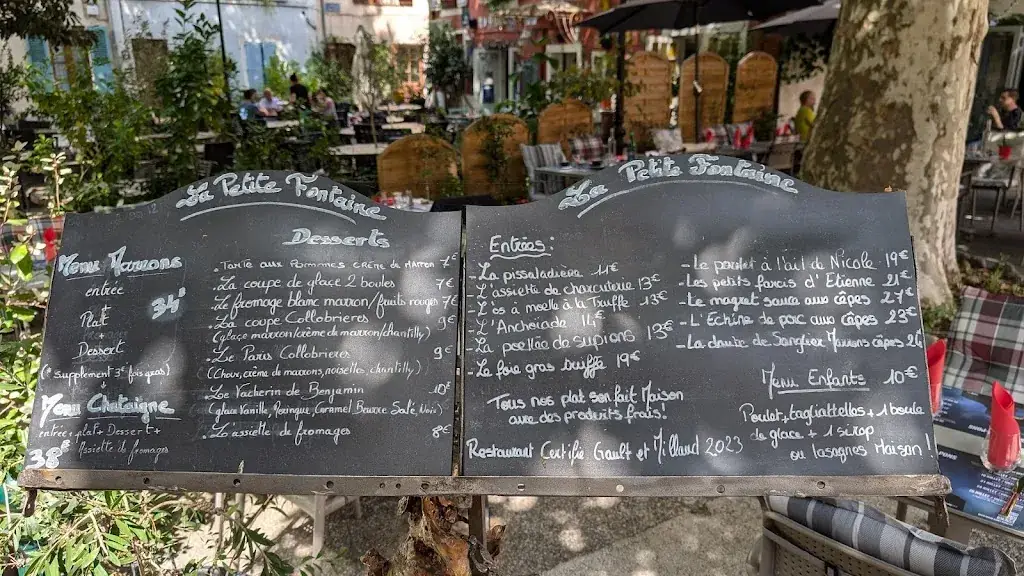 La Petite Fontaine
Menu Marrons
entrée
+
Plat
+
Dessert
(* supplément 3€ fois gras)
34€
Menu Chataigne
entrée + plat + Dessert +
Assiette de fromages
38€
Desserts
. Tarte aux pommes crème de marron 7€
. La coupe de glace 2 boules 7€
. Le fromage blanc marron/fruits rouges 7€
. La coupe Collobrieres 9€
(glace marron/crème de marron/chantilly)
. Le Paris Collobrieres 9€
(Choux, crème de marrons, noiselles, chantilly)
. Le Vacherin de Benjamin 10€
(glace Vanille, Meringue, Caramel Beurre Salé, Noix)
. L'assielle de fromages 8€
La Petite Fontaine
Entrées:
- La pissaladière 11€
- L'assiette de charcuterie 13€
- L'os à moelle à la Truffe 13€
- L'Anchoiade 14€
- La poellée de supions 13€
- Le foie gras truffé 19€
Tous nos plat son fait Maison
avec des produits frais!
Restaurant Certifié Gault et Milland 2023
- Le poulet à l'ail de Nicole 19€
- Les petits farcis d'Etienne 21€
- Le magret sauce aux cèpes 27€
- L'Echine de porc aux Cèpes 23€
- La daube de Sanglier Marrons cèpes 26
Menu Enfants 10€
Poulet, tagliattelles + 1 boule
de glace + 1 sirop
ou lasagnes Maison!